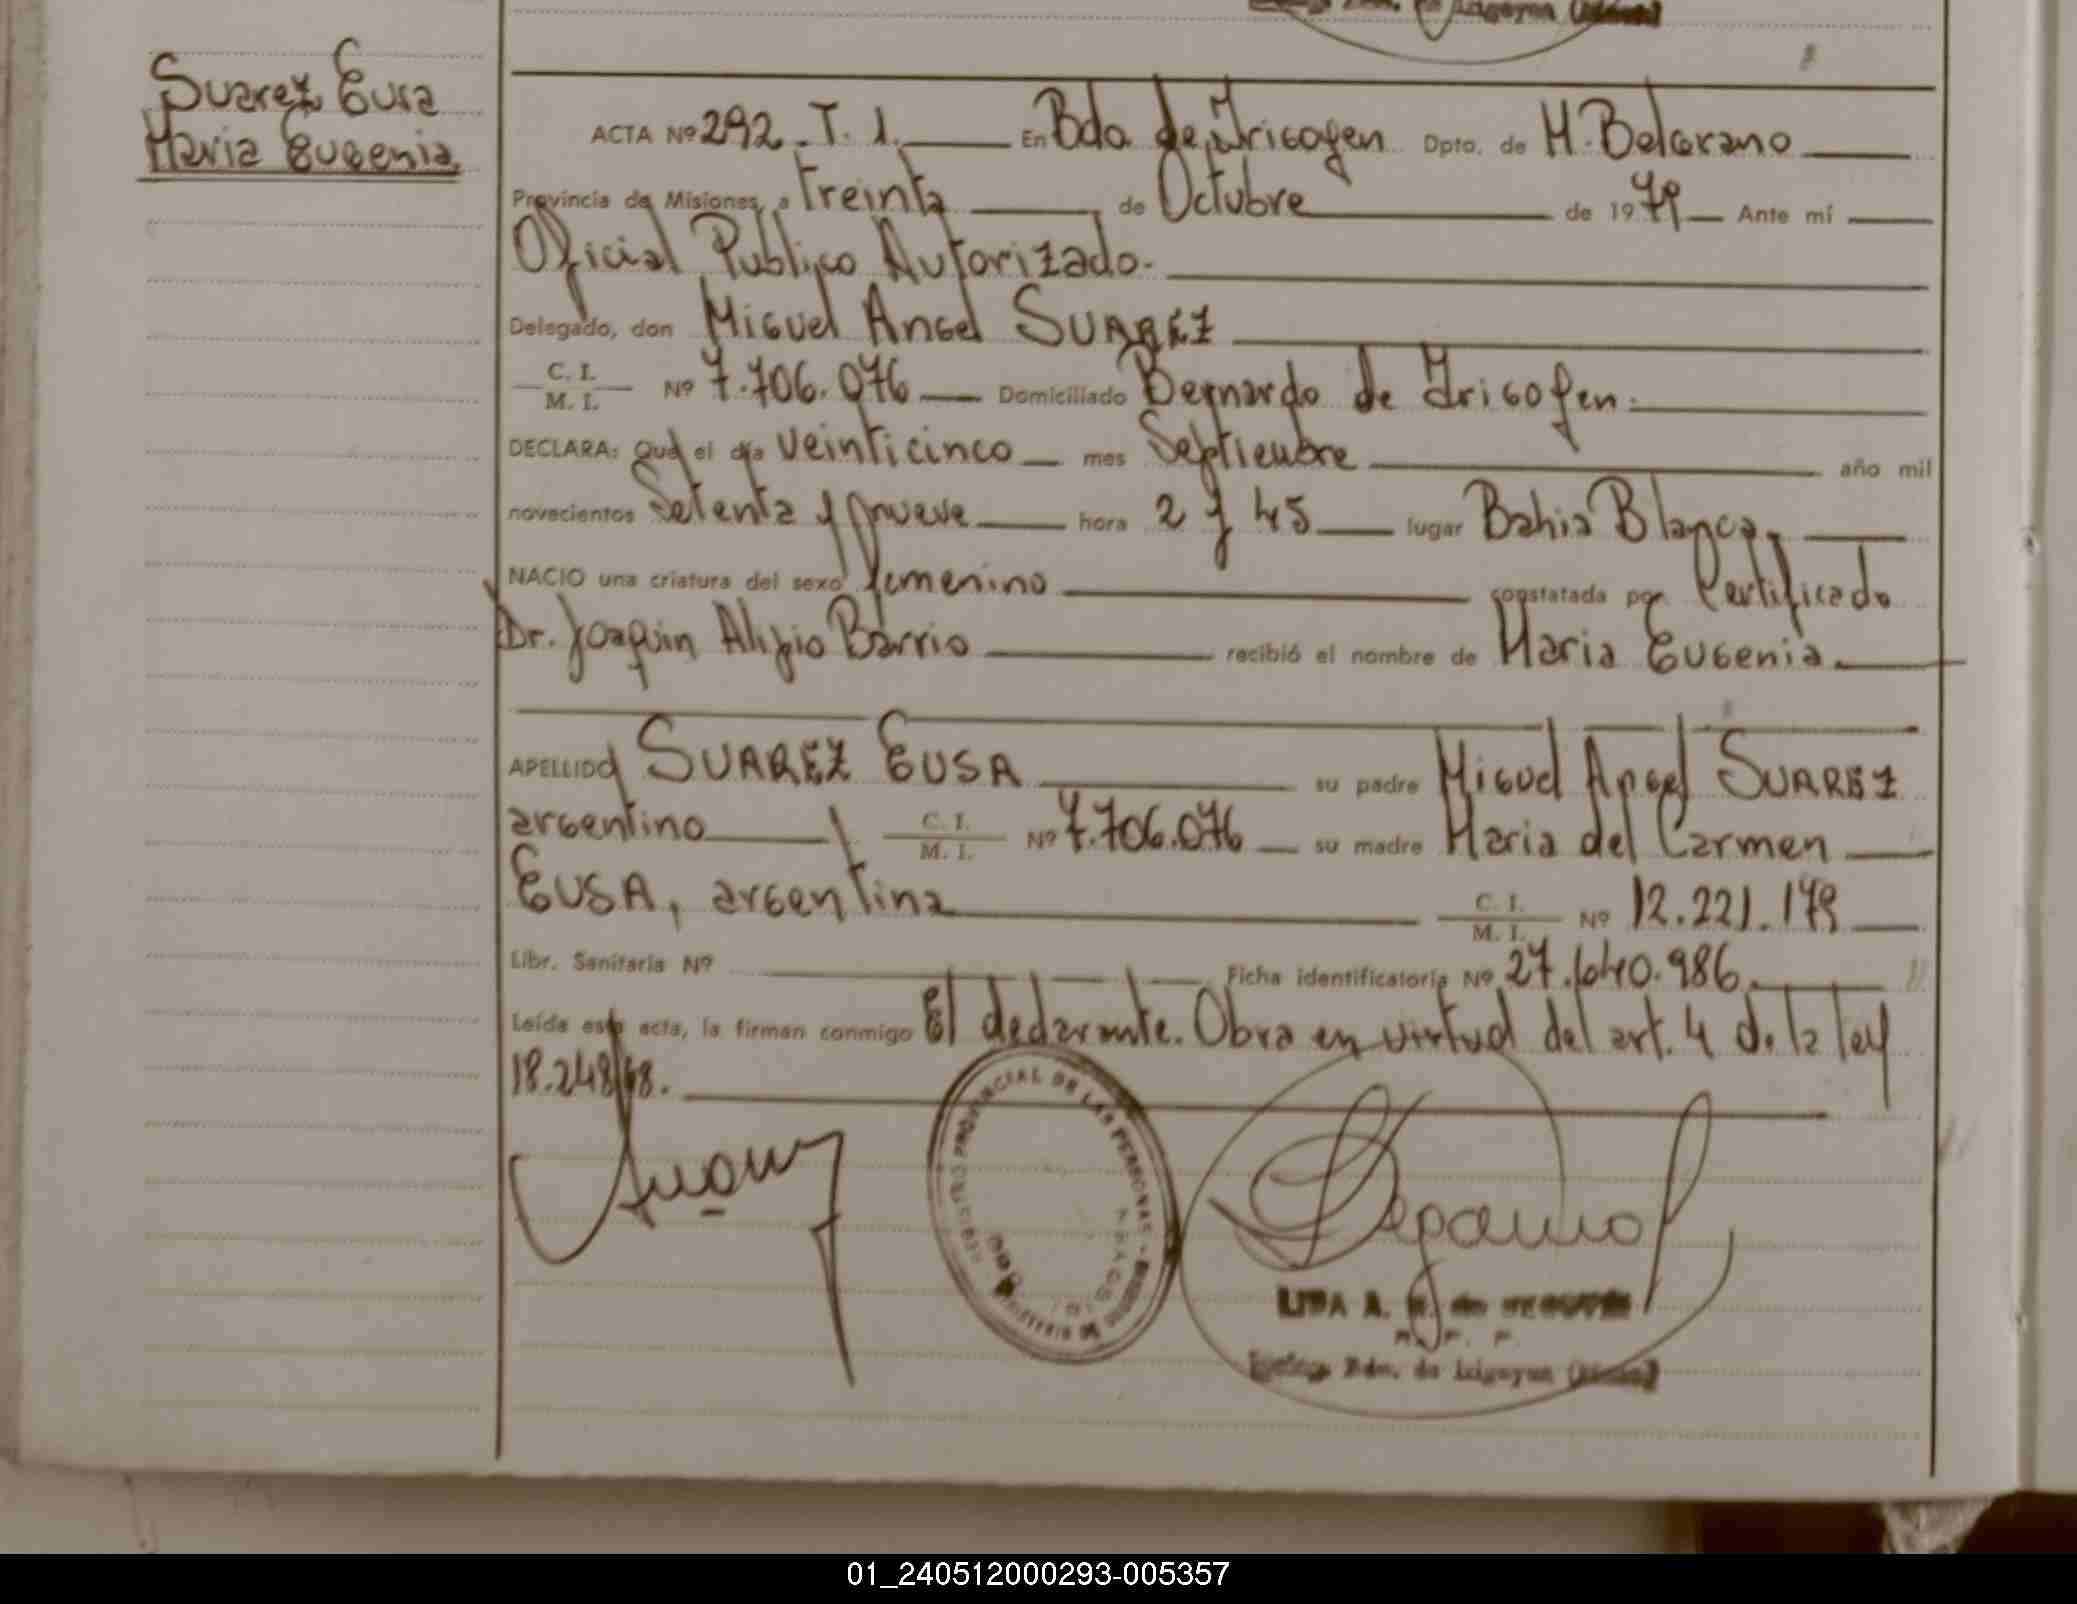 de Irigoyen
Suarez Eusa
Maria Eugenia
ACTA Nº 292 - T. 1. En Bdo. de Irigoyen Dpto. de M. Belgrano
Provincia de Misiones, a Treinta de Octubre de 1979 Ante mí
Oficial Publico Autorizado.
Delegado, don Miguel Angel SUAREZ
C. I.
M. I. Nº 7.706.076 Domiciliado Bernardo de Irigoyen.
DECLARA: Que el día veinticinco mes Septiembre año mil
novecientos Setenta y nueve hora 2 y 45 lugar Bahia Blanca,
NACIO una criatura del sexo femenino constatada por Certificado
Dr. Joaquin Barrio recibió el nombre de Maria Eugenia.
APELLIDO SUAREZ EUSA su padre Miguel Angel SUAREZ
argentino C. I.
M. I. Nº 7.706.076 su madre Maria del Carmen
EUSA, argentina C. I.
M. I. Nº 12.221.179
Libr. Sanitaria Nº Ficha identificatoria Nº 27.640.986
Leída esta acta, la firman conmigo El declarante. Obra en virtud del art. 4 de la ley
18.248/68.
PROVINCIAL DE LAS PERSONAS
LIDA A. de
Bdo. de Irigoyen
01_240512000293-005357